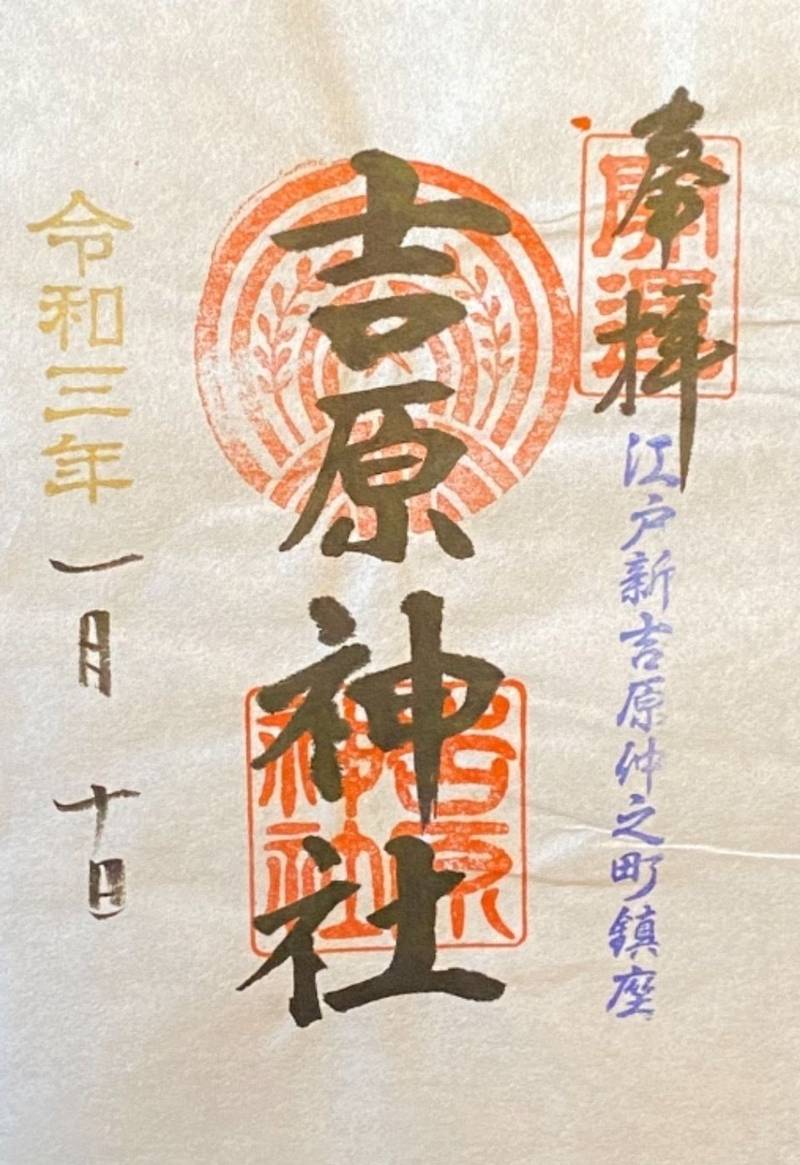 奉拝
開運
江戸新吉原仲之町鎮座
吉原神社
吉原
神社
令和三年一月十日